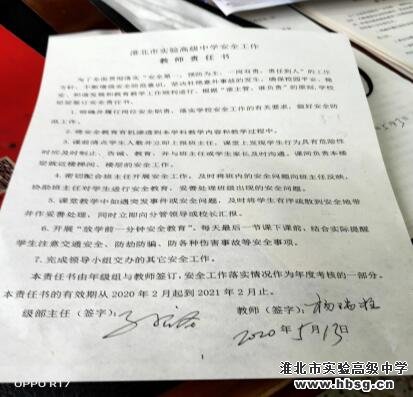 淮北市实验高级中学安全工作
教师责任书
为了全面贯彻落实“安全第一，预防为主，一岗双责，责任到人”的工作
方针，不断增强安全防范意识，坚决杜绝意外事故的发生，确保校园平安、稳
定，积极发展和教育教学工作顺利进行，根据“谁主管、谁负责”的原则，学校
特签订安全责任书。
1. 明确并履行岗位安全职责，落实学校安全工作的有关要求，做好安全防
范工作。
2. 将安全教育有机渗透到本学科教学内容和教学过程中。
3. 课前清点学生人数并立即上报班主任，课堂上发现学生行为具有危险性
时应及时制止、告诫、教育，并与班主任或学生家长及时沟通。课间负责本楼
层就近楼梯间、楼层的安全工作。
4. 密切配合班主任开展安全工作，及时将班内的安全问题向班主任反映，
协助班主任对学生进行安全教育，妥善处理班级出现的安全问题。
5. 课堂教学中如遇突发事件或安全问题，及时将学生有序疏散到安全地带
并作妥善处理，同时立即向分管领导或校长汇报。
6. 开展“放学前一分钟安全教育”。每天最后一节课下课前，结合实际提醒
学生注意交通安全、防劫防骗、防各种伤害事故等安全事项。
7. 完成领导小组交办的其它安全工作。
本责任书由年级组与教师签订，安全工作落实情况作为年度考核的一部分。
本责任书的有效期从 2020 年 2 月起到 2021 年 2 月止。
级部主任（签字）：
教师（签字）：杨瑞柱
2020年5月13日
1
OPPO R17
淮北市实验高级中学
www.hbsg.cn